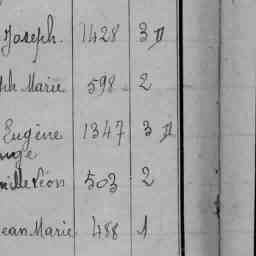 Joseph. 1428 3 II
ph Marie 598 2
Eugène 1347 3 II
nille Léon 503 2
ean Marie 488 1